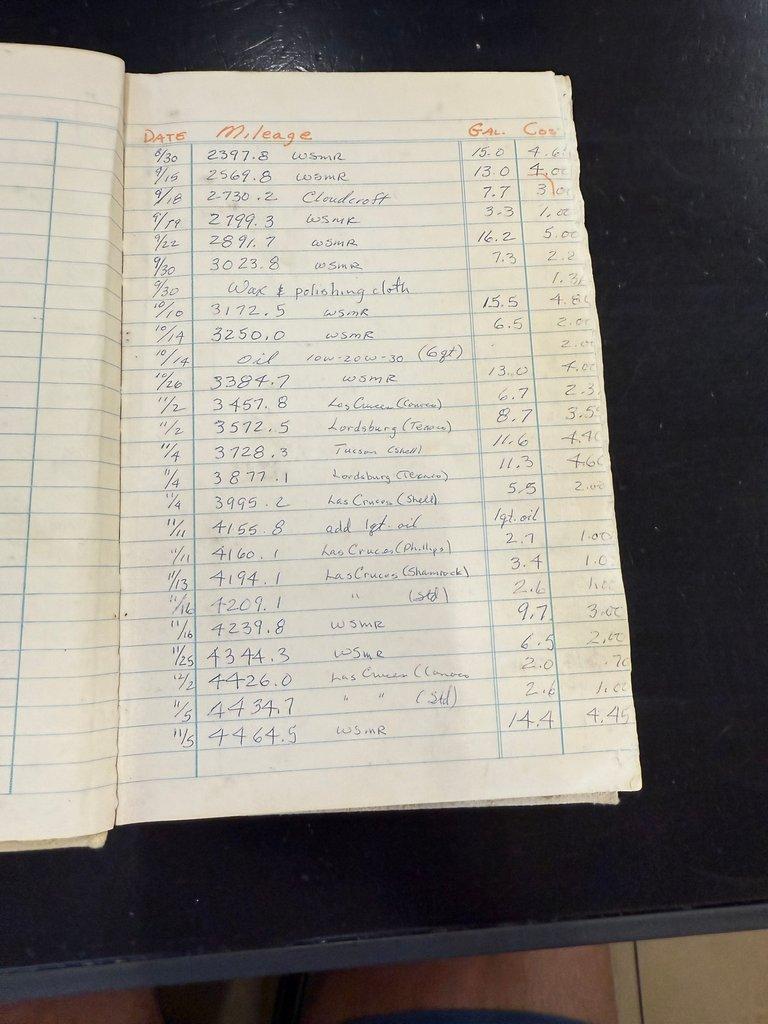 DATE Mileage GAL. Cos
8/30 2397.8 WSMR 15.0 4.6
9/15 2569.8 WSMR 13.0 4.00
9/18 2730.2 Cloudcroft 7.7 3.00
9/19 2799.3 WSMR 3.3 1.00
9/22 2891.7 WSMR 16.2 5.00
9/30 3023.8 WSMR 7.3 2.2
9/30 Wax & polishing cloth 1.3
10/10 3172.5 WSMR 15.5 4.80
10/14 3250.0 WSMR 6.5 2.00
10/14 Oil 10W-20W-30 (6qt) 2.00
10/26 3384.7 WSMR 13.0 4.00
11/2 3457.8 Las Cruces (Conoco) 6.7 2.3
11/2 3572.5 Lordsburg (Texaco) 8.7 3.5
11/4 3728.3 Tucson (Shell) 11.6 4.40
11/4 3877.1 Lordsburg (Texaco) 11.3 4.60
11/4 3995.2 Las Cruces (Shell) 5.5 2.00
11/11 4155.8 add 1qt. oil 1qt. oil
11/11 4160.1 Las Cruces (Phillips) 2.7 1.00
11/13 4194.1 Las Cruces (Shamrock) 3.4 1.0
11/16 4209.1 " (Std) 2.6 1.00
11/16 4239.8 WSMR 9.7 3.00
11/25 4344.3 WSMR 6.5 2.00
12/2 4426.0 Las Cruces (Conoco 2.0 .70
11/5 4434.7 " " (Std) 2.6 1.00
11/5 4464.5 WSMR 14.4 4.45